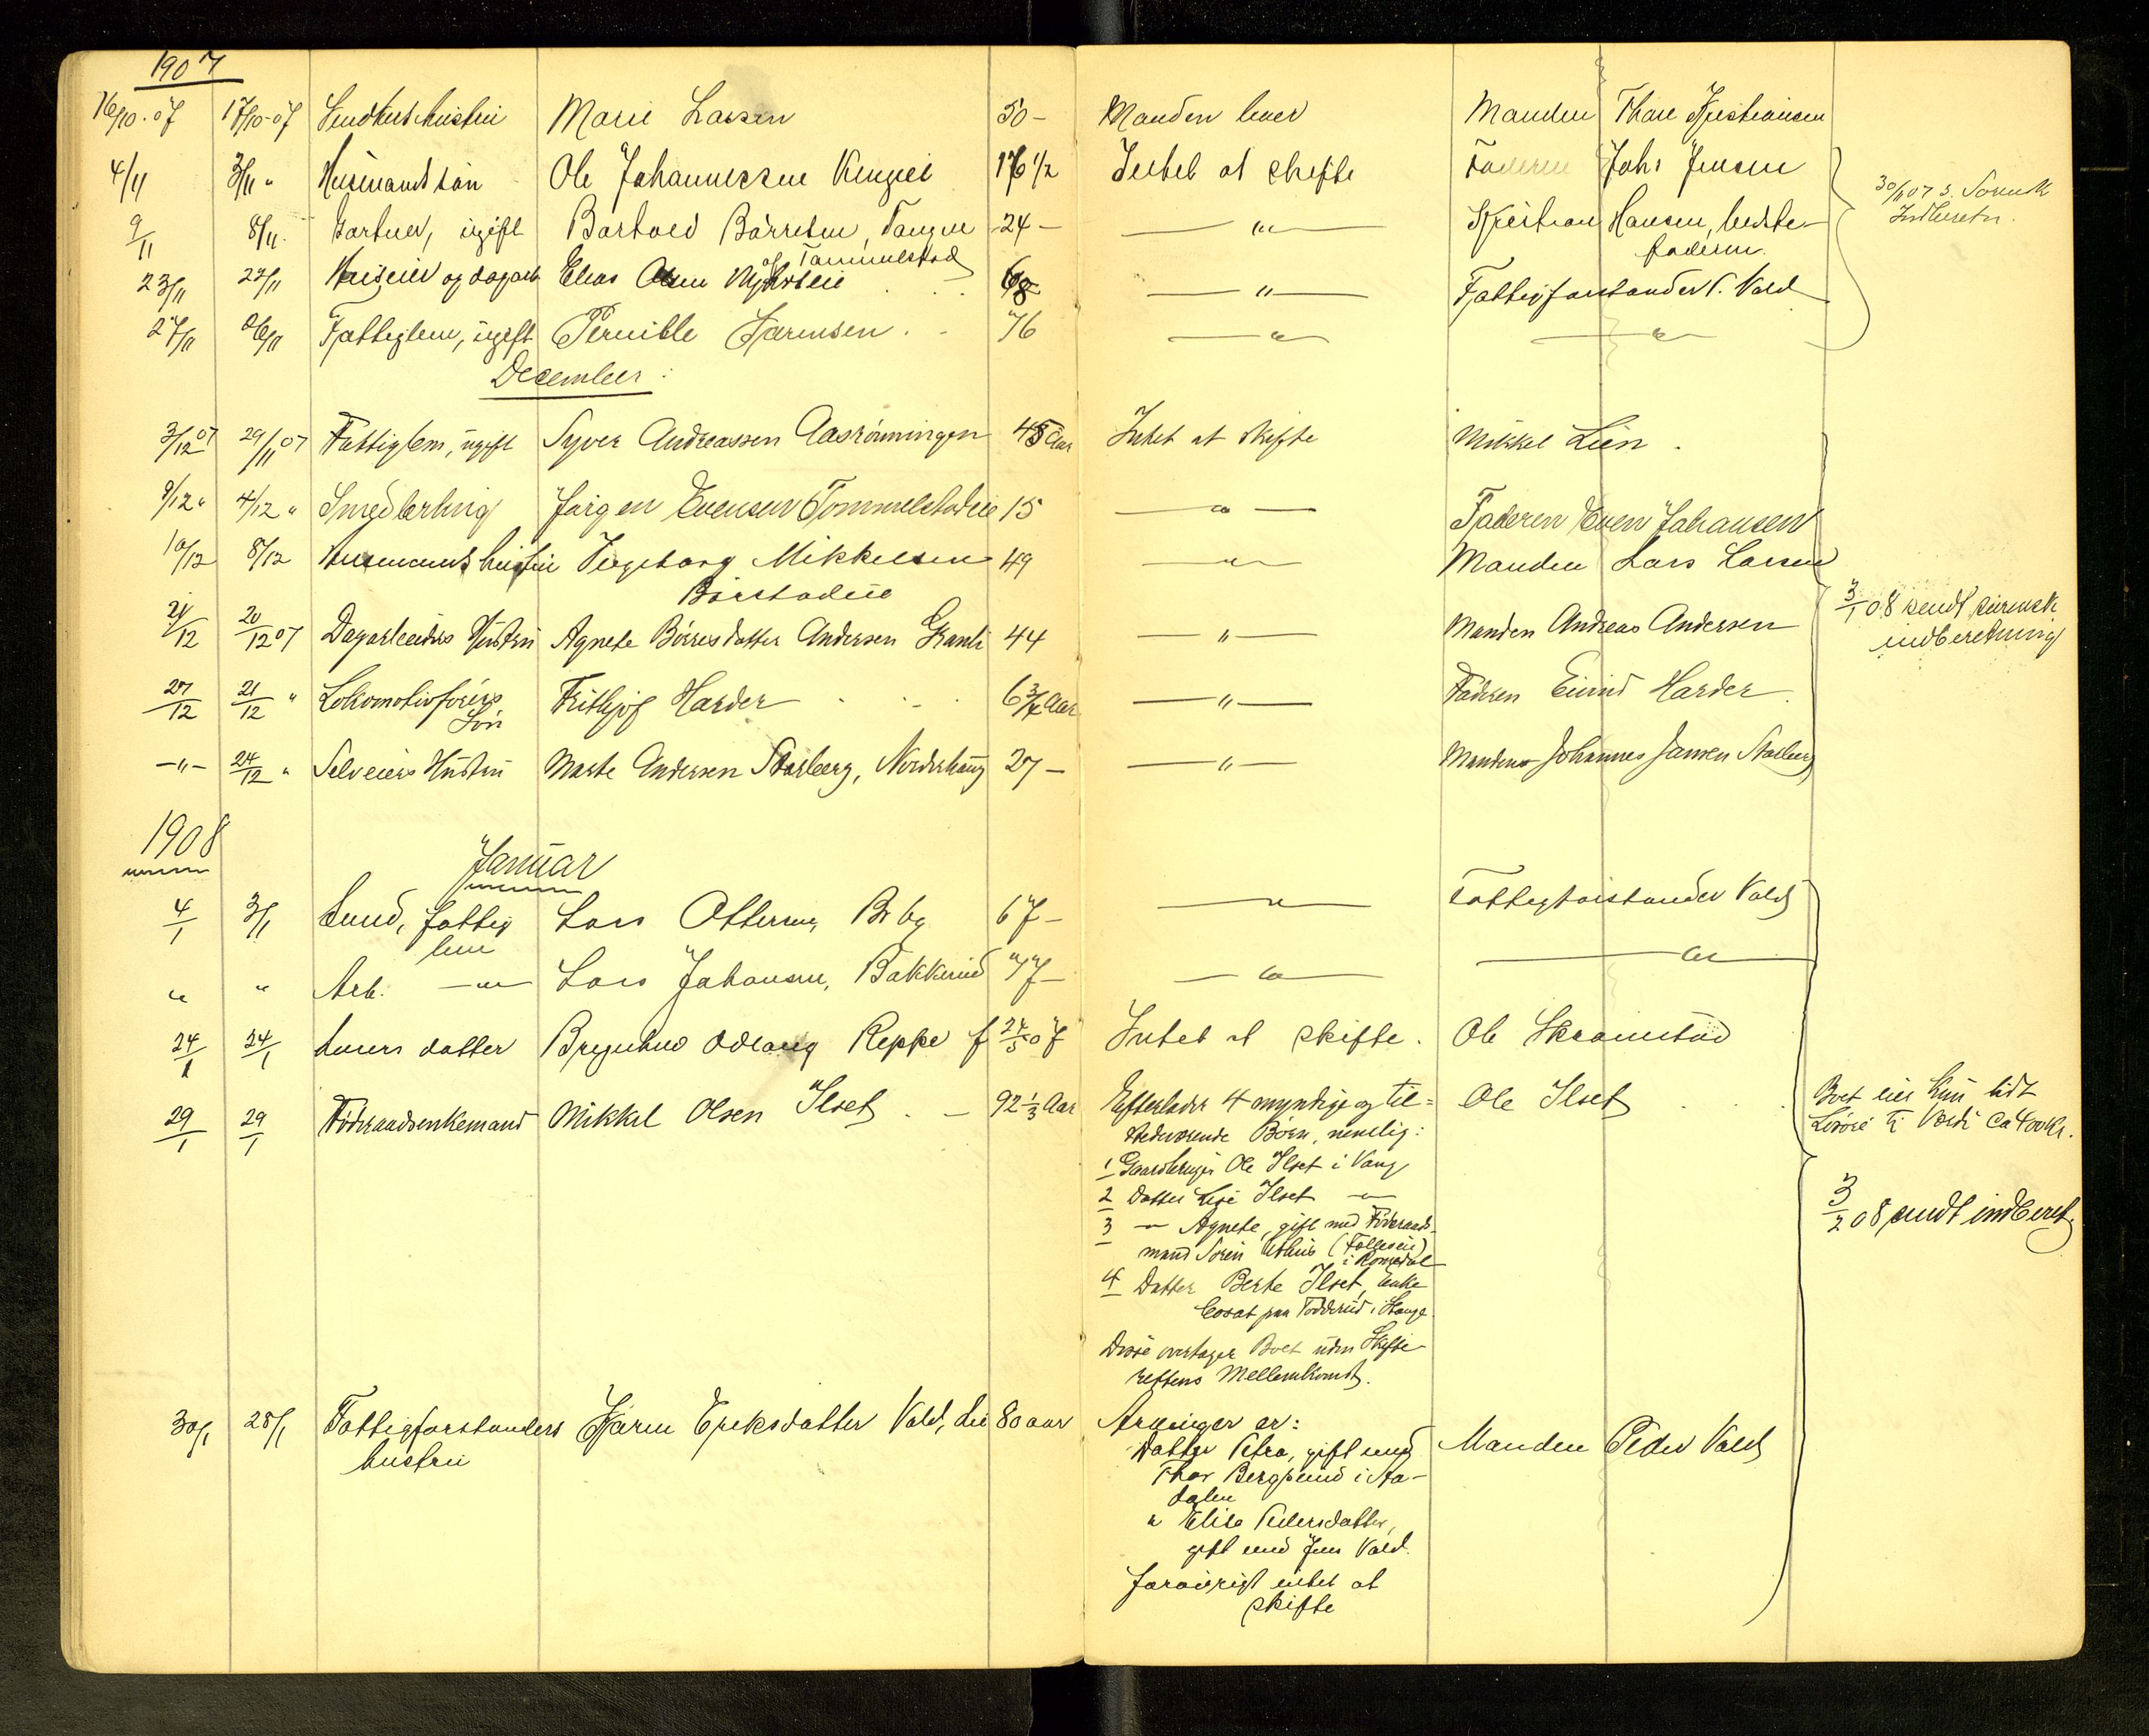 1907
16/10-07 17/10-07 hustru Marie Larsen 50 - Manden lever Manden Thore Kristiansen
4/11 3/11 " Husmandssøn Ole Johannessen 16 1/2 Intet at skifte Faderen Johs Jensen
9/11 8/11 Gartner, ugift Bartold Børresen, Tangen 24 - — " — Kristian Hansen, bedste-
faderen
30/11 07 s. Sorensk
Indberetn.
af Tommelstad
23/11 22/11 Huseier og dagarb Elias Olsen 68 — " — Fattigforstander P. Vald
27/11 26/11 Fattiglem, ugift Pernille 76 — " — — " —
December:
3/12 07 29/11 07 Fattiglem, ugift Syver Andreassen Aasrønningen 45 Aar Intet at skifte Mikkel Lien.
9/12 " 4/12 " Smedlærling Jørgen Evensen Tommelstadeie 15 — " — Faderen Even Johansen
10/12 8/12 Husmands hustru Ingeborg Mikkelsen 49 — " — Manden Lars Larsen
Børstadeie
21/12 20/12 07 Dagarbeiders Hustru Agnete Børresdatter Andersen Granli 44 — " — Manden Andreas Andersen
3/1 08 sendt sorensk
indberetning
27/12 21/12 " Lokomotivførers Frithjof Harder 6 3/4 Aar — " — Faderen Eivind Harder
Søn
— " — 24/12 " Selveiers Hustru Marte Andersen Storberg, Nordshaug 27 - — " — Manden Johannes Jansen
1908
Januar
4/1 3/1 fattig Lars 67 - — " — Fattigforstander Vald
lem
" " Arb. — " — Lars Johansen, Bakkerud 77 - — " — — " —
24/1 24/1 datter Brynhild Odlaug Reppe f 24/5 07 Intet at skifte. Ole Skramstad
29/1 29/1 Føderaadsenkemand Mikkel Olsen Ilset - 92 1/3 Aar Efterlader 4 myndige og til= Ole Ilset
stedeværende Børn, nemlig:
Boet eier kun lidt
Løsøre til Værdi ca 400 Kr.
1 Gaardbruger Ole Ilset i Vang
2 Datter Lise Ilset — " —
3 — " — Agnete, gift med Føderaads-
mand Søren (Follerseie)
i Romedal
3/2 08 sendt indberet.
4 Datter Berte Ilset, Enke
bosat paa i Stange
Disse overtager Boet uden Skifte-
rettens Mellemkomst.
30/1 28/1 Fattigforstanders Karen Eriksdatter Vald, 80 aar Arvinger er: Manden Peder Vald
hustru
Datter Petra, gift med
Thor Bergsund i Aa-
dalen
" Elise Pedersdatter,
gift med Jens Vald.
forøvrigt intet at
skifte